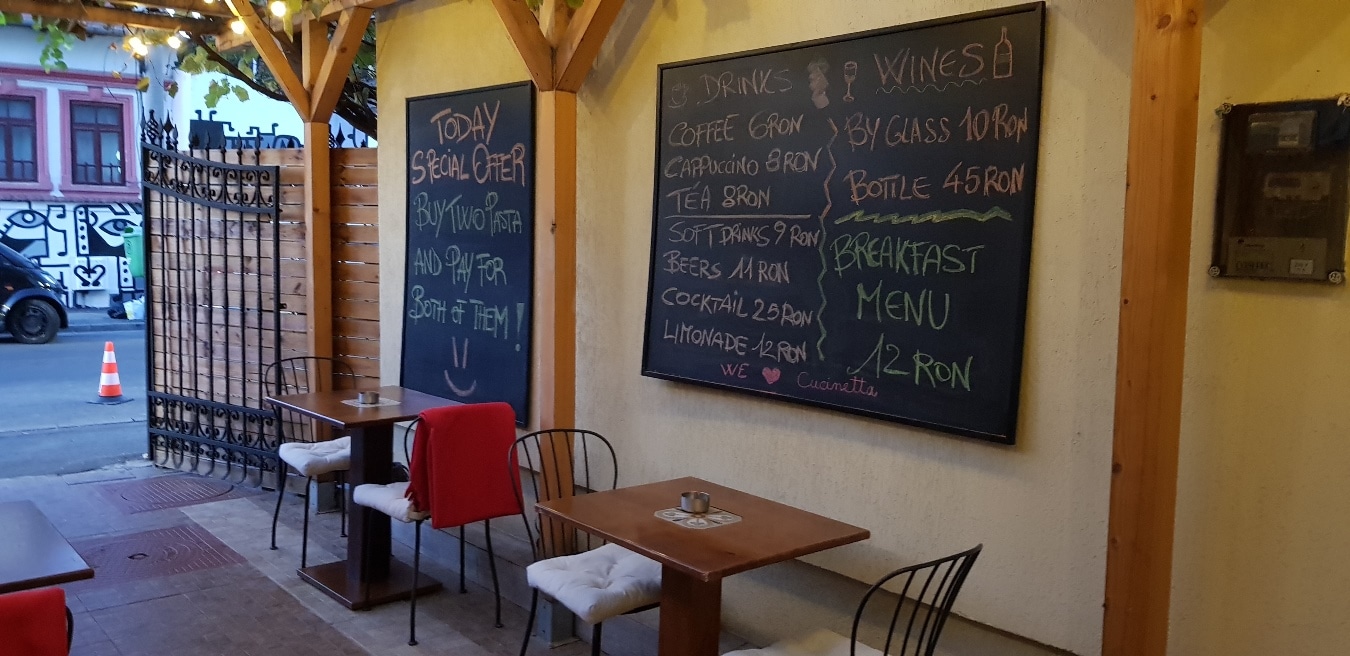 TODAY
SPECIAL OFFER
BUY TWO PASTA
AND PAY FOR
BOTH OF THEM!
DRINKS
COFFEE 6RON
CAPPUCCINO 8RON
TÉA 8RON
SOFT DRINKS 9 RON
BEERS 11 RON
COCKTAIL 25RON
LIMONADE 12RON
WE ❤ Cucinetta
WINES
BY GLASS 10 RON
BOTTLE 45 RON
BREAKFAST
MENU
12 RON